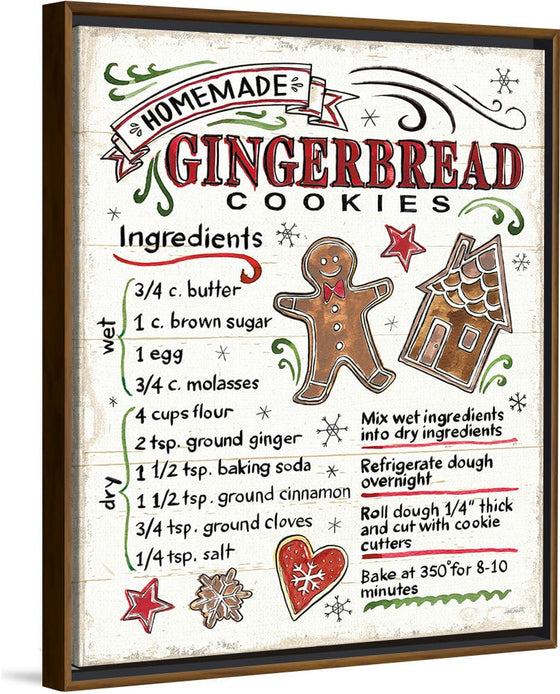 HOMEMADE
GINGERBREAD
COOKIES
Ingredients
wet
3/4 c. butter
1 c. brown sugar
1 egg
3/4 c. molasses
dry
4 cups flour
2 tsp. ground ginger
1 1/2 tsp. baking soda
1 1/2 tsp. ground cinnamon
3/4 tsp. ground cloves
1/4 tsp. salt
Mix wet ingredients
into dry ingredients
Refrigerate dough
overnight
Roll dough 1/4" thick
and cut with cookie
cutters
Bake at 350° for 8-10
minutes